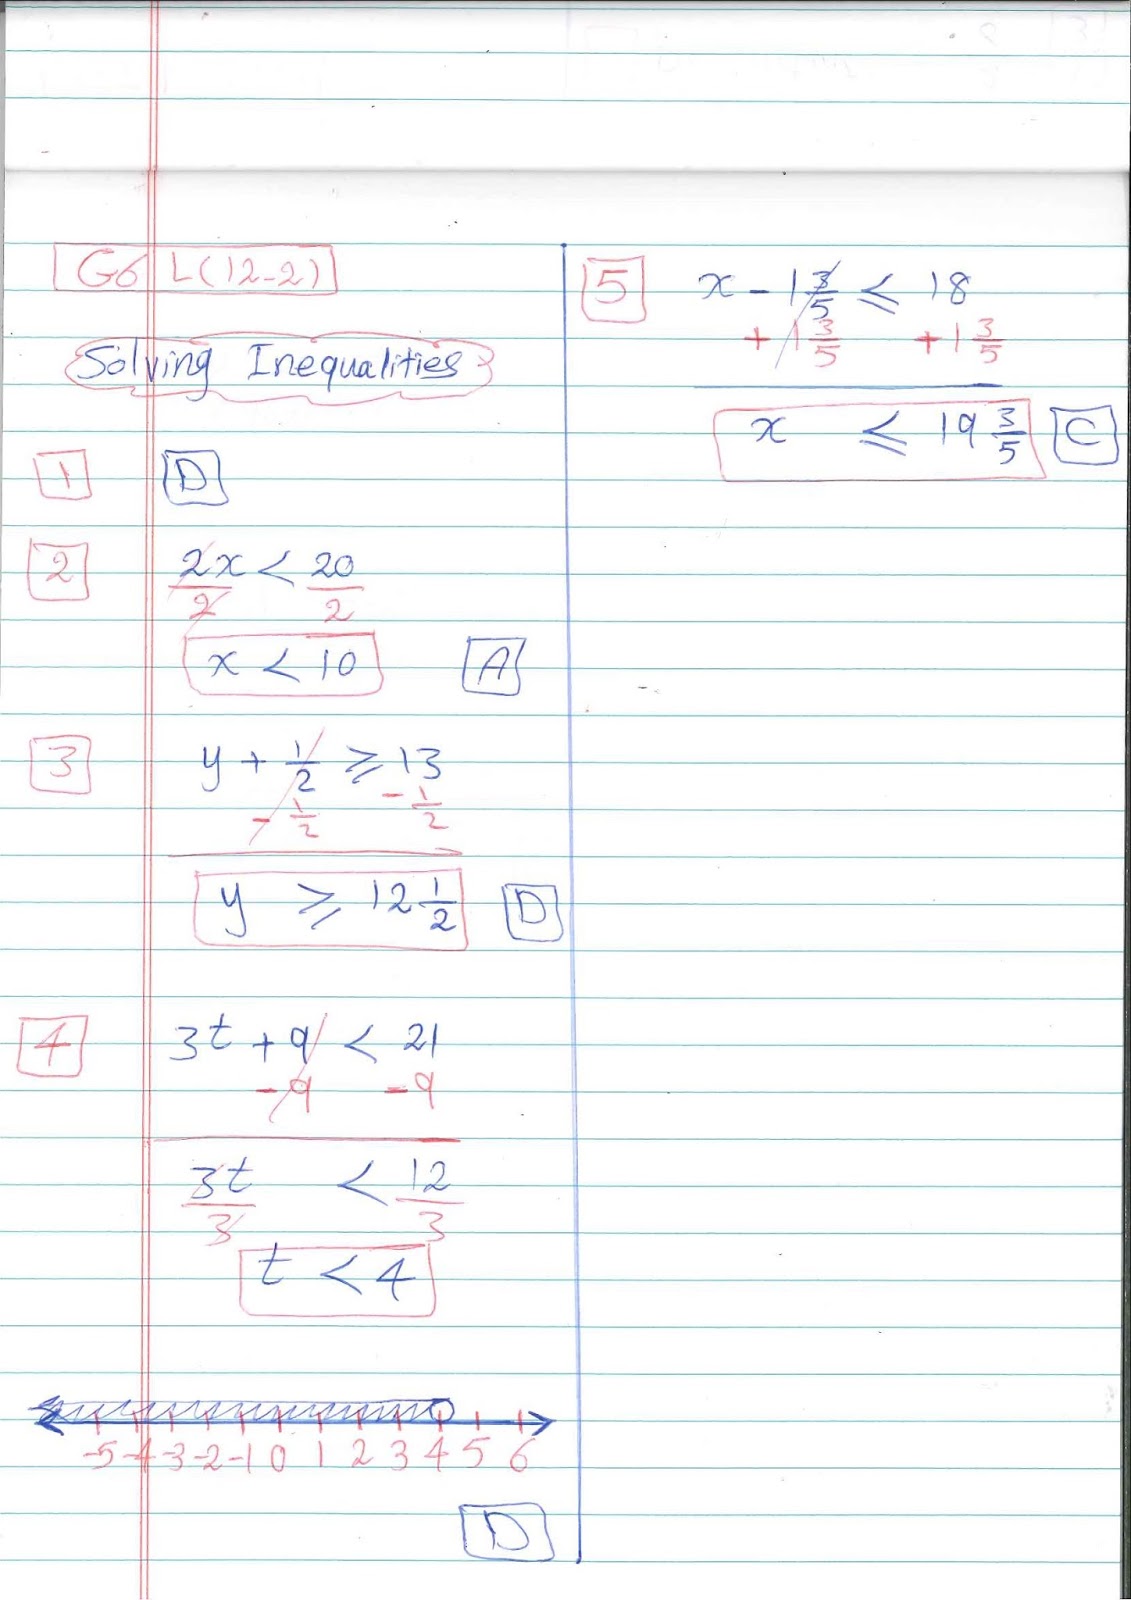 G6 L(12-2)
Solving Inequalities
1 D
2 2x < 20
2 2
x < 10 A
3 y + 1/2 ≥ 13
- 1/2 - 1/2
y ≥ 12 1/2 D
4 3t + 9 < 21
- 9 - 9
3t < 12
3 3
t < 4
-5 -4 -3 -2 -1 0 1 2 3 4 5 6
D
5 x - 1 3/5 ≤ 18
+ 1 3/5 + 1 3/5
x ≤ 19 3/5 C